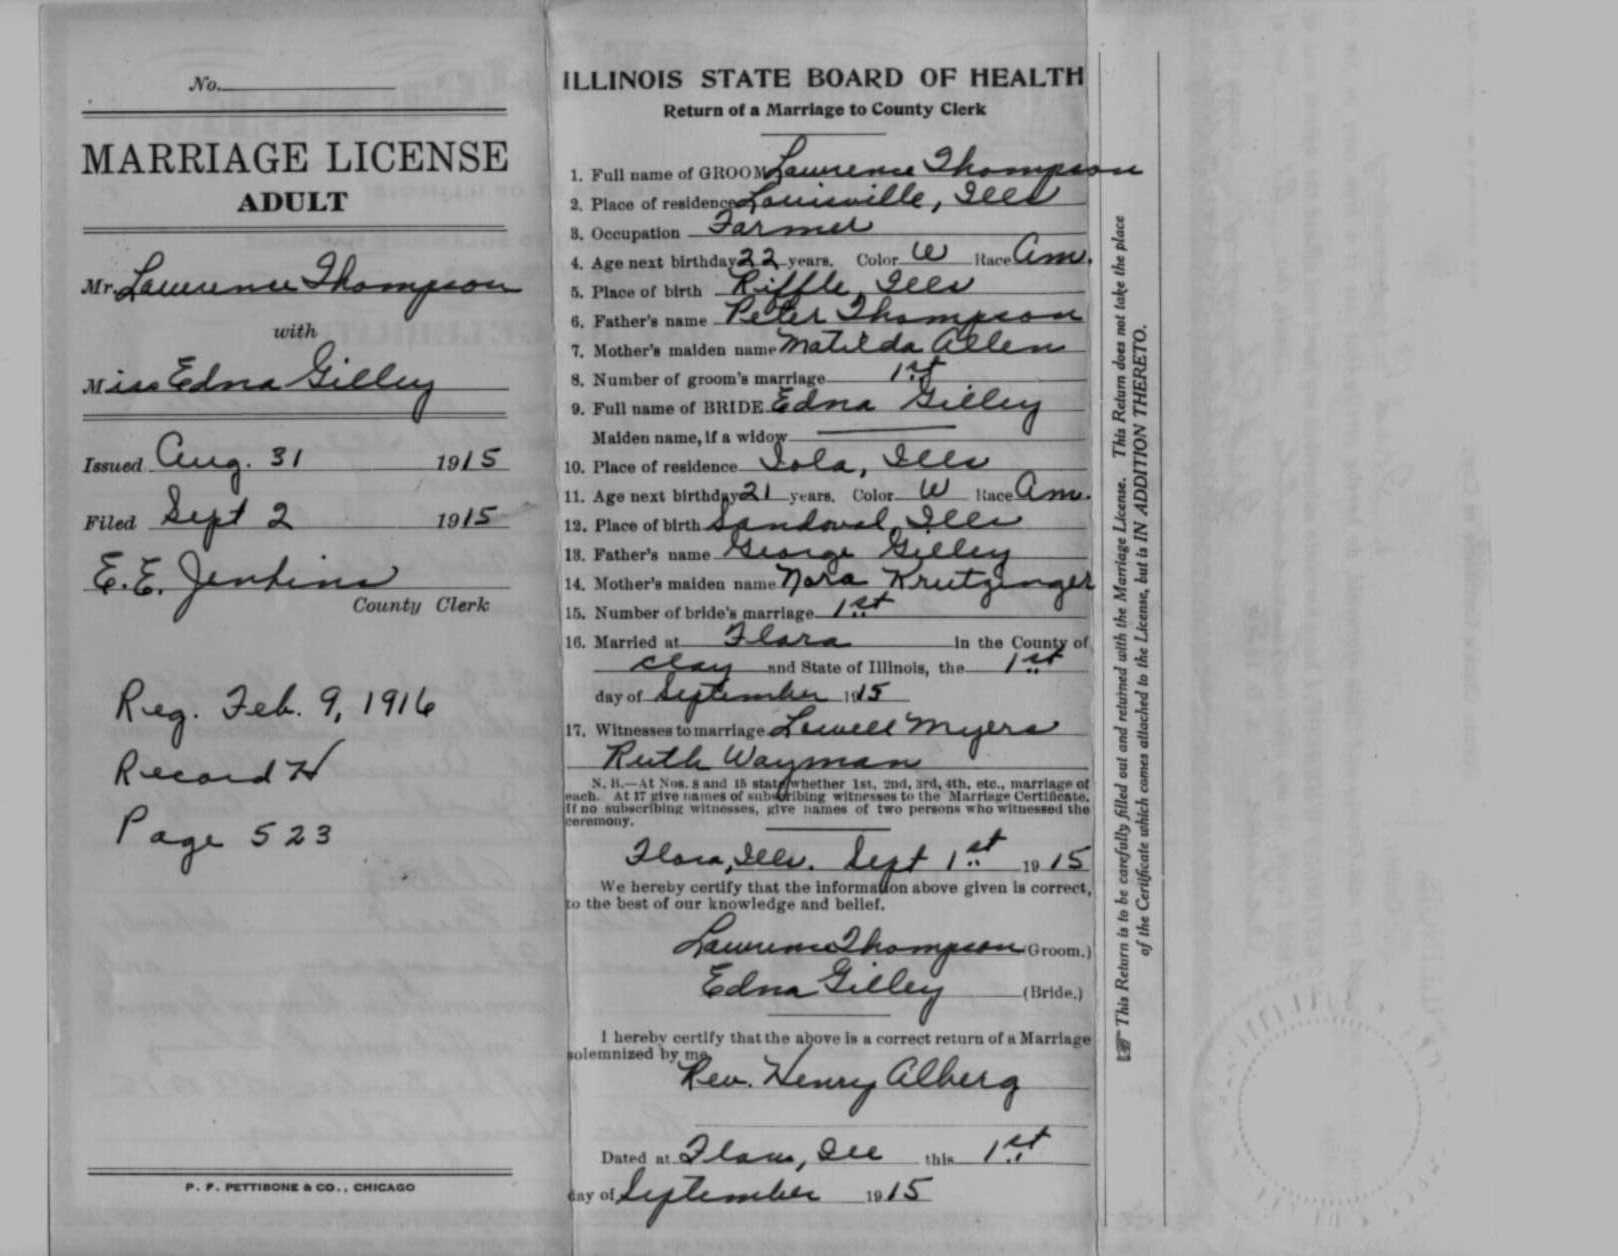 No.
MARRIAGE LICENSE
ADULT
Mr. Lawrence Thompson
with
Miss Edna Gilley
Issued Aug. 31 1915
Filed Sept 2 1915
E. E. Jenkins
County Clerk
Reg. Feb. 9, 1916
Record H
Page 523
P. F. PETTIBONE & CO., CHICAGO
ILLINOIS STATE BOARD OF HEALTH
Return of a Marriage to County Clerk
1. Full name of GROOM Lawrence Thompson
2. Place of residence Louisville, Ills
3. Occupation Farmer
4. Age next birthday 22 years. Color W Race Am.
5. Place of birth Riffle, Ills
6. Father's name Peter Thompson
7. Mother's maiden name Matilda Allen
8. Number of groom's marriage 1st
9. Full name of BRIDE Edna Gilley
Maiden name, if a widow
10. Place of residence Iola, Ills
11. Age next birthday 21 years. Color W Race Am.
12. Place of birth Sandoval, Ills
13. Father's name George Gilley
14. Mother's maiden name Nora Krutzinger
15. Number of bride's marriage 1st
16. Married at Flora in the County of
Clay and State of Illinois, the 1st
day of September 1915
17. Witnesses to marriage Lowell Myers
Ruth Wayman
N. B.—At Nos. 8 and 15 state whether 1st, 2nd, 3rd, 4th, etc., marriage of
each. At 17 give names of subscribing witnesses to the Marriage Certificate.
If no subscribing witnesses, give names of two persons who witnessed the
ceremony.
Flora, Ills. Sept 1st 1915
We hereby certify that the information above given is correct,
to the best of our knowledge and belief.
Lawrence Thompson (Groom.)
Edna Gilley (Bride.)
I hereby certify that the above is a correct return of a Marriage
solemnized by me.
Rev. Henry Alberg
Dated at Flora, Ill this 1st
day of September 1915
☞ This Return is to be carefully filled out and returned with the Marriage License. This Return does not take the place
of the Certificate which comes attached to the License, but is IN ADDITION THERETO.